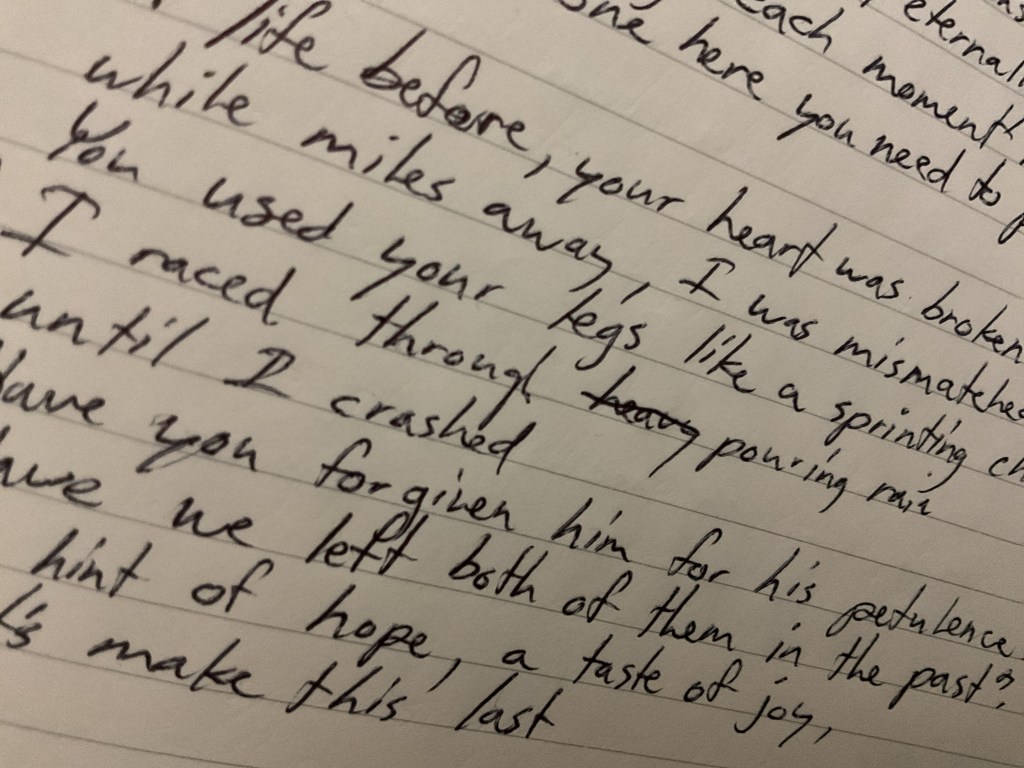 each moment
one here you need to
life before, your heart was broken
while miles away, I was mismatched
You used your legs like a sprinting
I raced through heavy pouring rain
until I crashed
Have you forgiven him for his petulence
have we left both of them in the past?
hint of hope, a taste of joy,
make this last